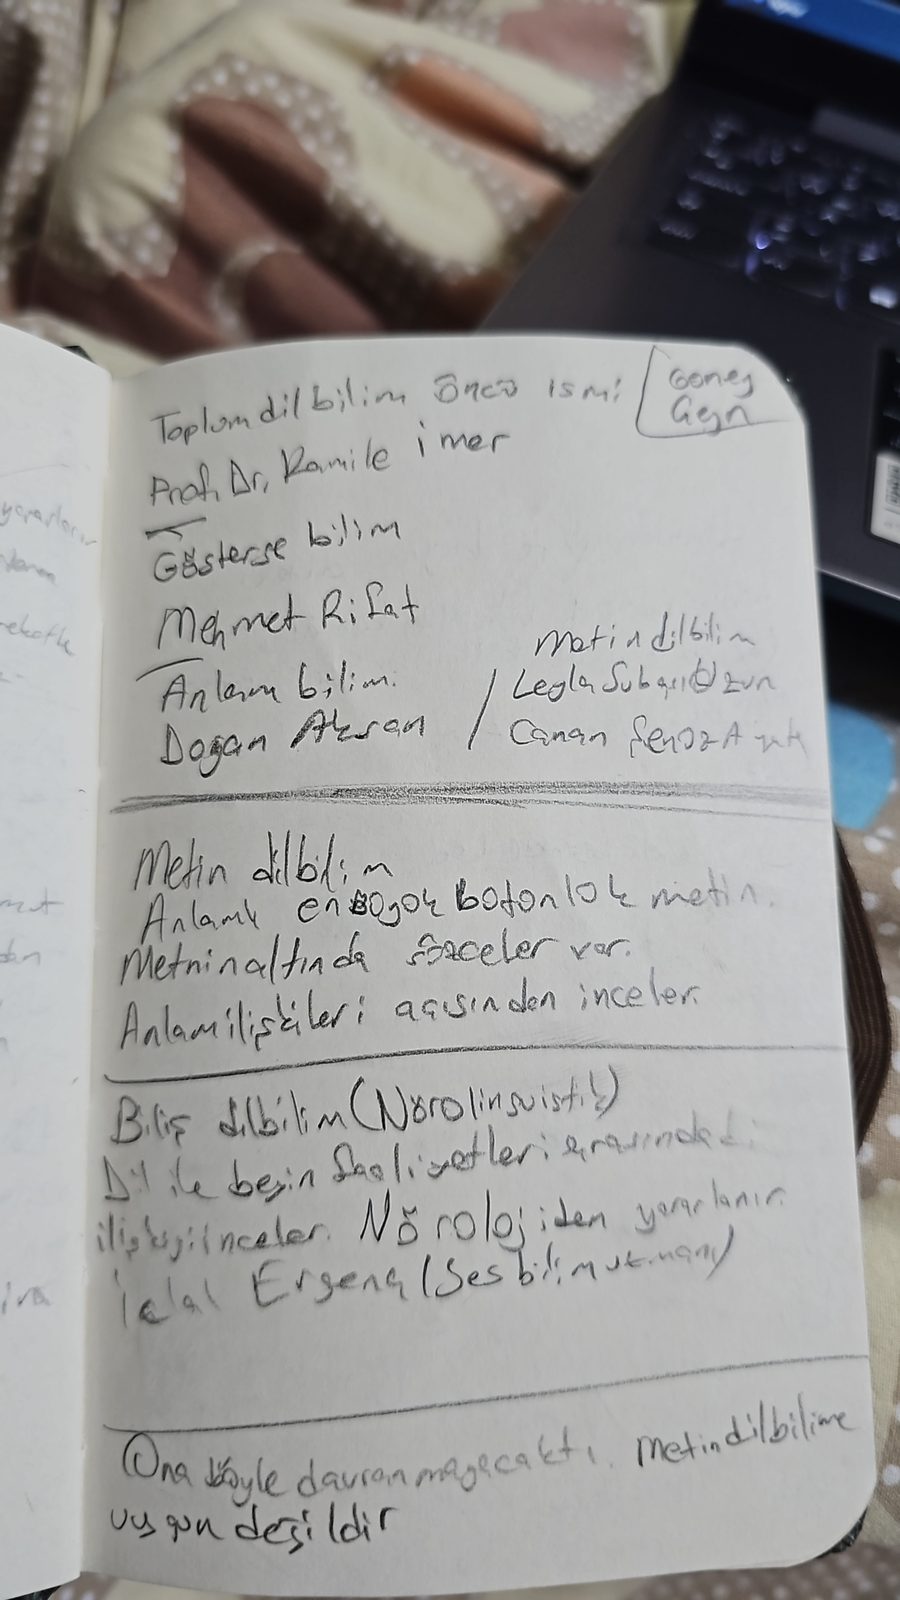 Toplumdilbilim öncü ismi
Güneş
Prof. Dr. Kamile İmer
Gösterge bilim
Mehmet Rifat
Anlam bilim
Doğan Aksan
Metindilbilim
Leyla Subaşı Uzun
Canan Şenöz Ayata
Metin dilbilim
Anlamlı en büyük bütünlük metin.
Metnin altında sözceler var.
Anlam ilişkileri açısından inceler.
Biliş dilbilim (Nörolinguistik)
Dil ile beyin faaliyetleri arasındaki
ilişkiyi inceler. Nörolojiden yararlanır.
İclal Ergenç (Ses bilim uzmanı)
Ona böyle davranmayacaktı. Metindilbilime
uygun değildir